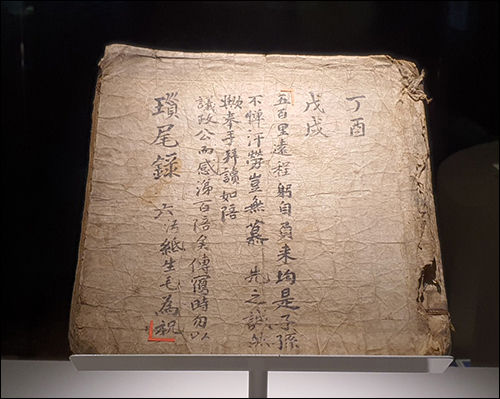 丁酉
戊戌
五百里遠程躬自負來均是子孫
不憚汗勞豈無慕 先之誠
奉手拜讀如陪
議政公而感涕百倍矣傳寫時勿以
瑣尾錄 紙生毛為祝